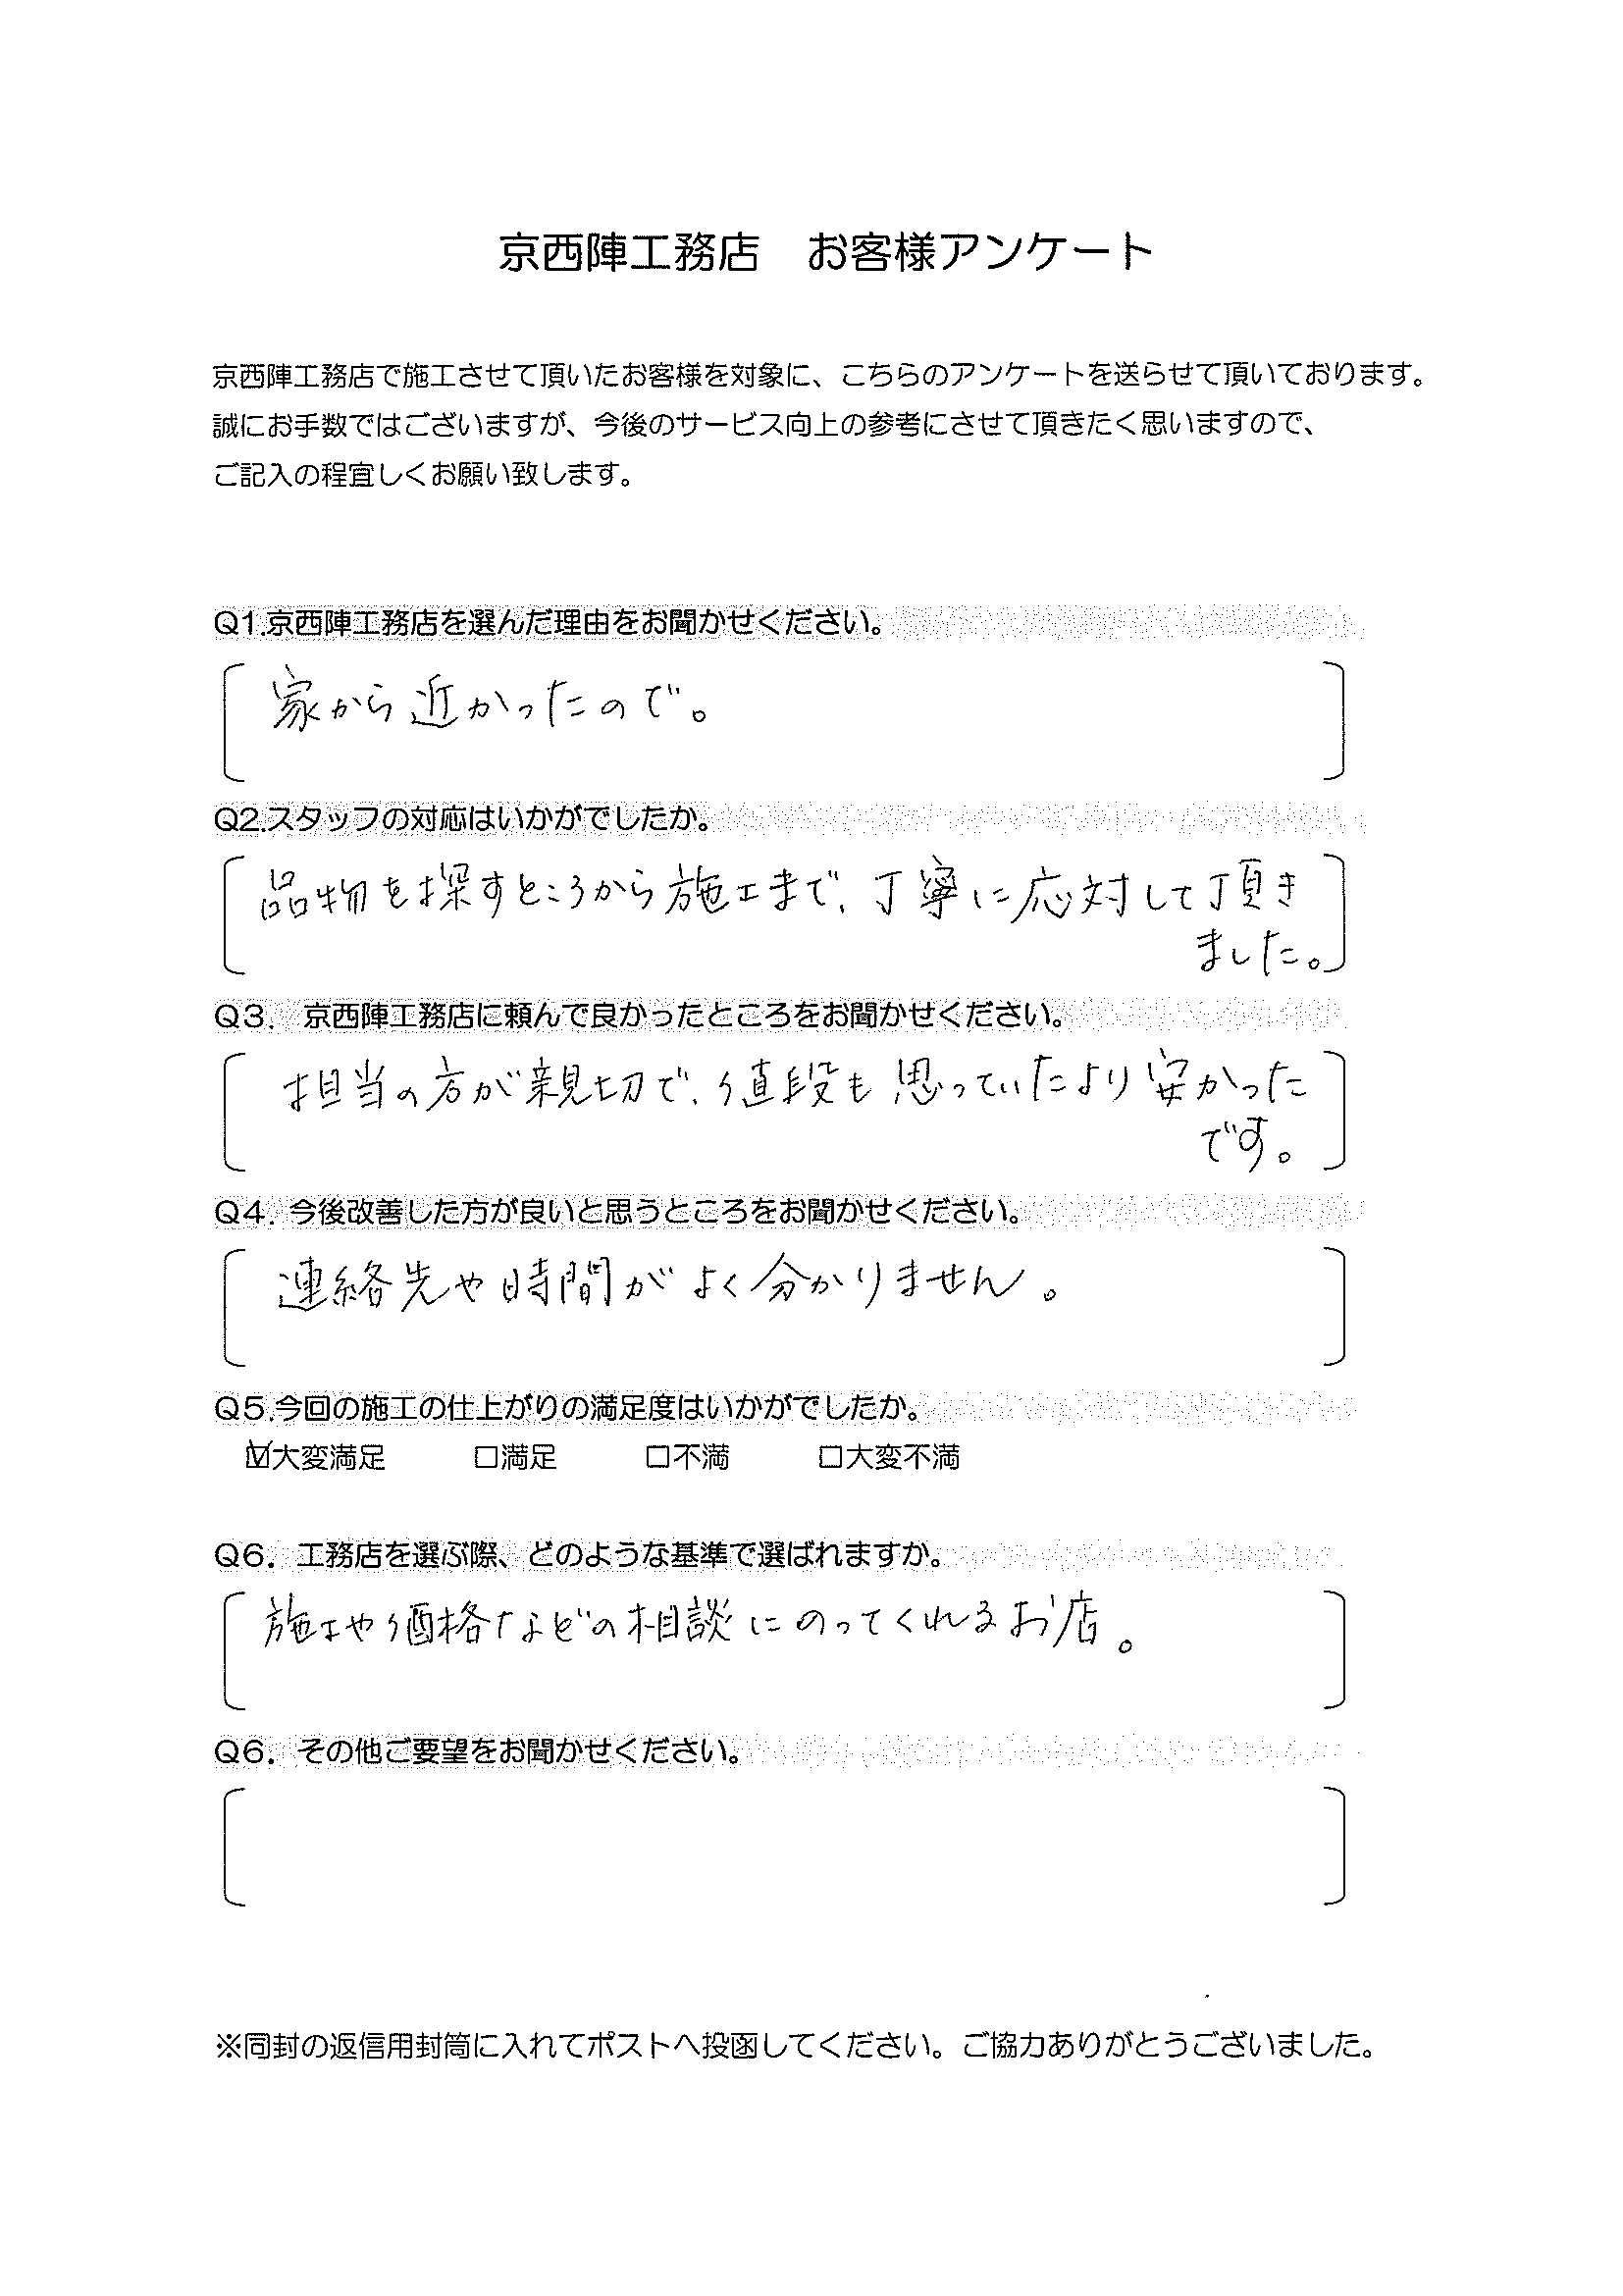 京西陣工務店　お客様アンケート
京西陣工務店で施工させて頂いたお客様を対象に、こちらのアンケートを送らせて頂いております。
誠にお手数ではございますが、今後のサービス向上の参考にさせて頂きたく思いますので、
ご記入の程宜しくお願い致します。
Q1.京西陣工務店を選んだ理由をお聞かせください。
家から近かったので。
Q2.スタッフの対応はいかがでしたか。
品物を探すところから施工まで、丁寧に応対して頂き
ました。
Q3. 京西陣工務店に頼んで良かったところをお聞かせください。
担当の方が親切で、値段も思っていたより安かった
です。
Q4. 今後改善した方が良いと思うところをお聞かせください。
連絡先や時間がよく分かりません。
Q5.今回の施工の仕上がりの満足度はいかがでしたか。
☑大変満足　□満足　□不満　□大変不満
Q6. 工務店を選ぶ際、どのような基準で選ばれますか。
施工や価格などの相談にのってくれるお店。
Q6. その他ご要望をお聞かせください。
※同封の返信用封筒に入れてポストへ投函してください。ご協力ありがとうございました。